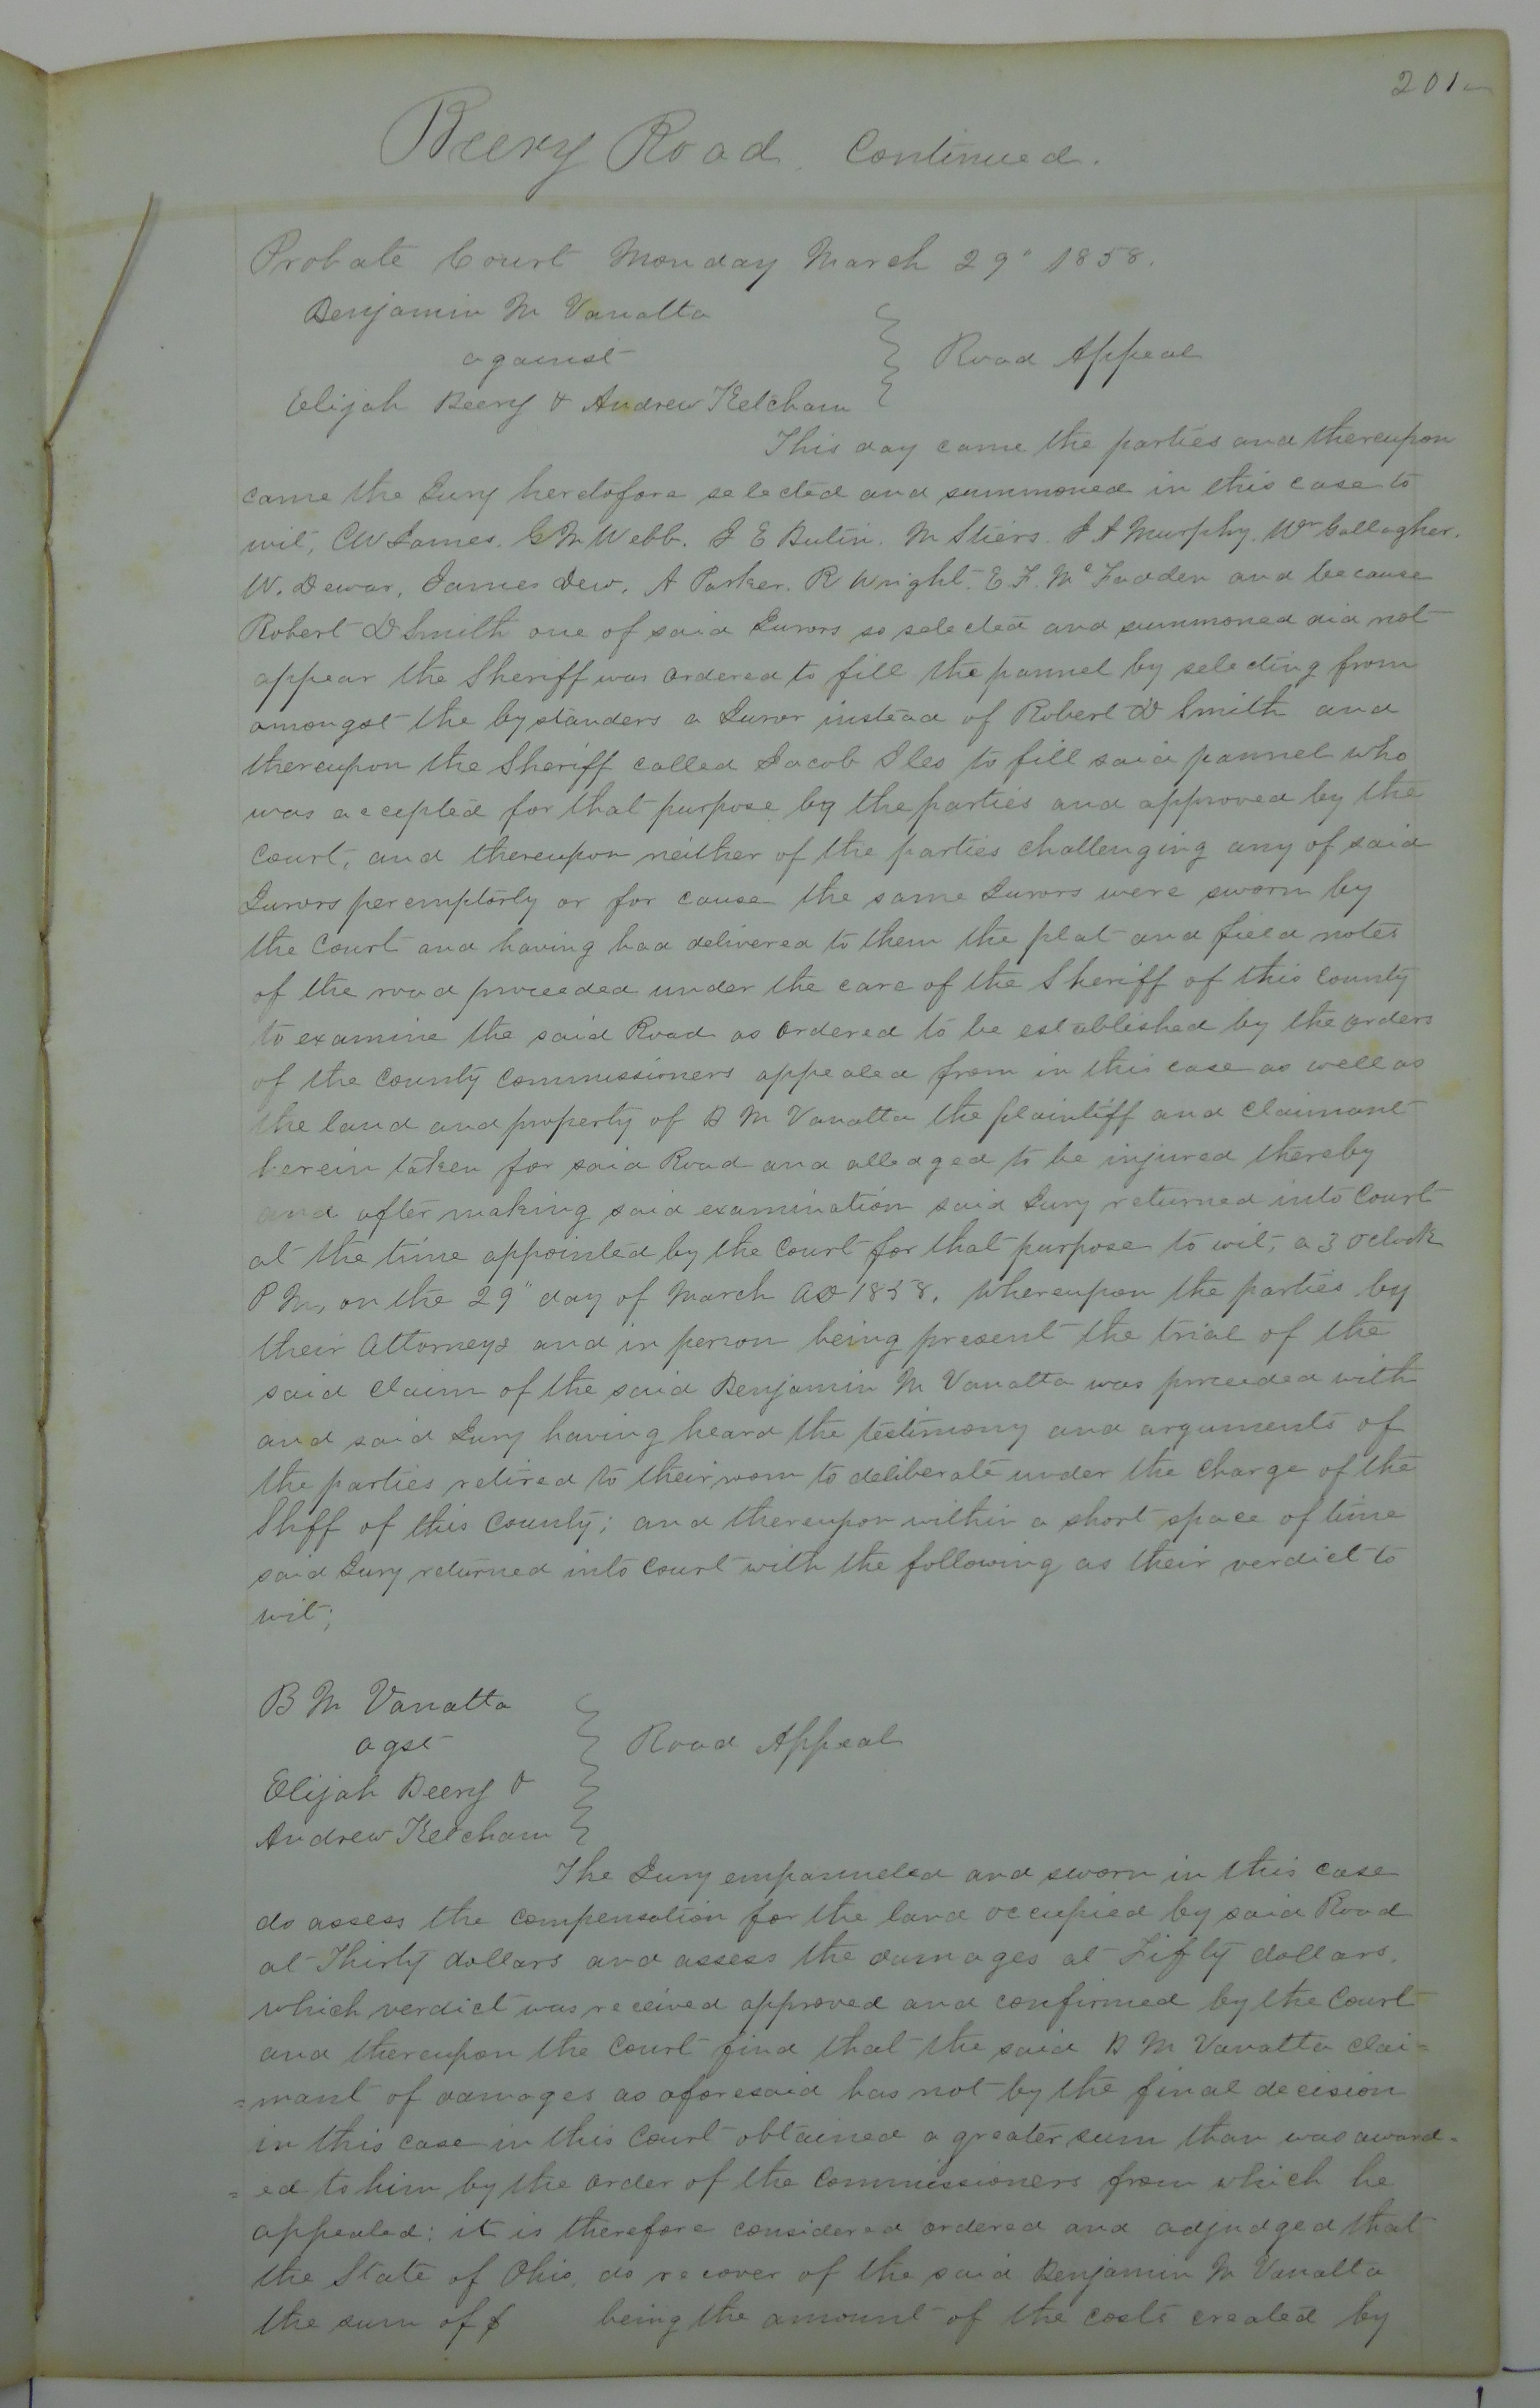 201
Beery Road. Continued.
Probate Court Monday March 29" 1858.
Benjamin M Vanatta
against
Elijah Beery & Andrew Ketcham
Road Appeal
This day came the parties and thereupon
came the Jury heretofore selected and summoned in this case to
wit, CW James. G M Webb. J E Butin. M Stiers. J A Murphy. Wm Gallagher.
W. Dewar, James Dew, A Parker. R Wright. E F. McFadden and because
Robert D Smith one of said Jurors so selected and summoned did not
appear the Sheriff was ordered to fill the pannel by selecting from
amongst the bystanders a Juror instead of Robert D Smith and
thereupon the Sheriff called Jacob Iles to fill said pannel who
was accepted for that purpose by the parties and approved by the
Court, and thereupon neither of the parties challenging any of said
Jurors peremptorly or for cause the same Jurors were sworn by
the Court and having had delivered to them the plat and field notes
of the road proceeded under the care of the Sheriff of this County
to examine the said Road as ordered to be established by the orders
of the County Commissioners appealed from in this case as well as
the land and property of B M Vanatta the plaintiff and Claimant
herein taken for said Road and alledged to be injured thereby
and after making said examination said Jury returned into Court
at the time appointed by the Court for that purpose to wit, a 3 oclock
P M, on the 29" day of March AD 1858, whereupon the parties by
their Attorneys and in person being present the trial of the
said claim of the said Benjamin M Vanatta was proceeded with
and said Jury having heard the testimony and arguments of
the parties retired to their room to deliberate under the charge of the
Shff of this County; and thereupon within a short space of time
said Jury returned into Court with the following as their verdict to
wit;
B M Vanatta
agst
Elijah Beery &
Andrew Ketcham
Road Appeal
The Jury empanneled and sworn in this case
do assess the compensation for the land occupied by said Road
at Thirty dollars and assess the damages at Fifty dollars.
which verdict was received approved and confirmed by the Court
and thereupon the Court find that the said B M Vanatta clai=
=mant of damages as aforesaid has not by the final decision
in this case in this Court obtained a greater sum than was award=
=ed to him by the order of the Commissioners from which he
appealed: it is therefore considered ordered and adjudged that
the State of Ohio, do recover of the said Benjamin M Vanatta
the sum of $ being the amount of the costs created by